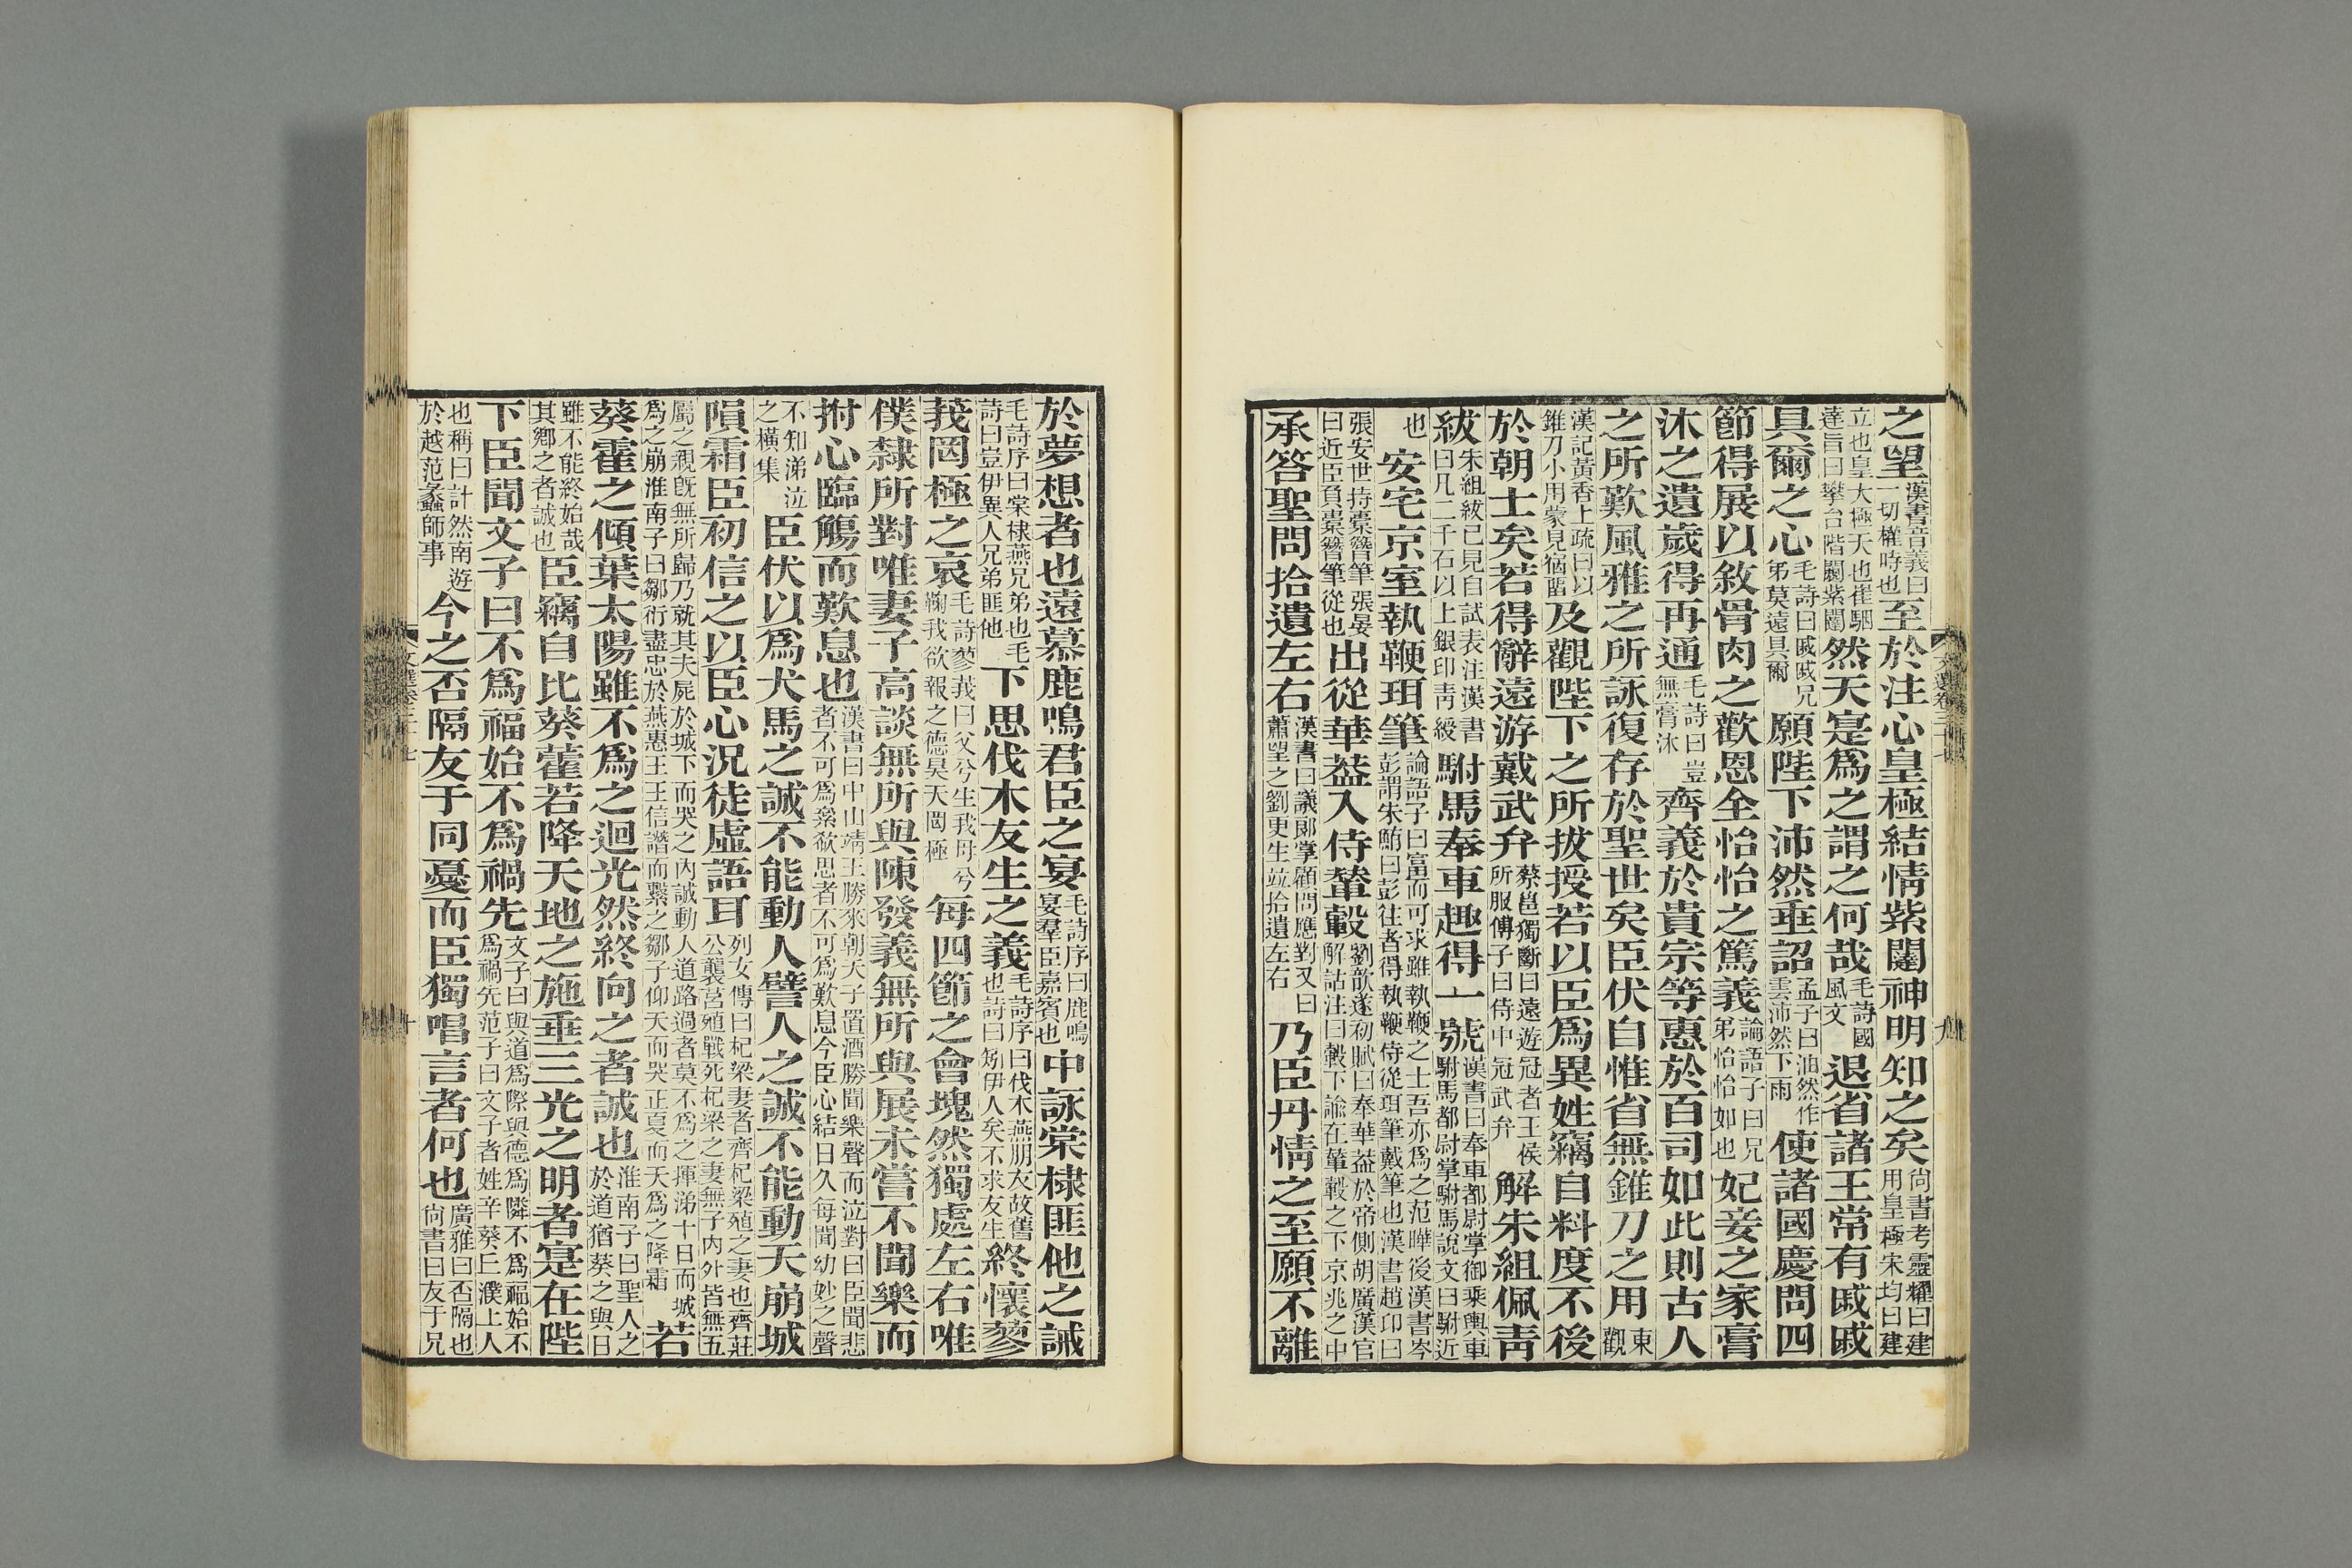 之望漢書音義曰一切權時也至於注心皇極結情紫闥神明知之矣尚書考靈耀曰建用皇極宋均曰建
立也皇大極天也崔駰達旨曰攀台階闚紫闥然天寔爲之謂之何哉毛詩國風文退省諸王常有戚戚
具爾之心毛詩曰戚戚兄弟莫遠具爾願陛下沛然垂詔孟子曰油然作雲沛然下雨使諸國慶問四
節得展以敘骨肉之歡恩全怡怡之篤義論語子曰兄弟怡怡如也妃妾之家膏
沐之遺歲得再通毛詩曰豈無膏沐齊義於貴宗等惠於百司如此則古人
之所歎風雅之所詠復存於聖世矣臣伏自惟省無錐刀之用東觀
漢記黃香上疏曰以錐刀小用蒙見宿畱及觀陛下之所拔授若以臣爲異姓竊自料度不後
於朝士矣若得辭遠游戴武弁蔡邕獨斷曰遠遊冠者王侯所服傅子曰侍中冠武弁解朱組佩青
紱朱組紱已見自試表注漢書曰凡二千石以上銀印青綬駙馬奉車趣得一號漢書曰奉車都尉掌御乘輿車駙馬都尉掌駙馬說文曰駙近
也安宅京室執鞭珥筆論語子曰富而可求雖執鞭之士吾亦爲之范曄後漢書岑彭謂朱鮪曰彭往者得執鞭侍從珥筆戴筆也漢書趙卬曰
張安世持橐簪筆張晏曰近臣負橐簪筆從也出從華蓋入侍輦轂劉歆遂初賦曰奉華蓋於帝側胡廣漢官解詁注曰轂下諭在輦轂之下京兆之中
承答聖問拾遺左右漢書曰議郎掌顧問應對又曰蕭望之劉更生並拾遺左右乃臣丹情之至願不離
於夢想者也遠慕鹿鳴君臣之宴毛詩序曰鹿鳴宴羣臣嘉賓也中詠棠棣匪他之誡
毛詩序曰棠棣燕兄弟也毛詩曰豈伊異人兄弟匪他下思伐木友生之義毛詩序曰伐木燕朋友故舊也詩曰矧伊人矣不求友生終懷蓼
莪罔極之哀毛詩蓼莪曰父兮生我母兮鞠我欲報之德昊天罔極每四節之會塊然獨處左右唯
僕隸所對唯妻子高談無所與陳發義無所與展未嘗不聞樂而
拊心臨觴而歎息也漢書曰中山靖王勝來朝天子置酒勝聞樂聲而泣對曰臣聞悲者不可爲絫欷思者不可爲歎息今臣心結日久每聞幼妙之聲
不知涕泣之橫集臣伏以爲犬馬之誠不能動人譬人之誠不能動天崩城
隕霜臣初信之以臣心況徒虛語耳列女傳曰杞梁妻者齊杞梁殖之妻也齊莊公襲莒殖戰死杞梁之妻無子內外皆無五
屬之親旣無所歸乃就其夫屍於城下而哭之內誠動人道路過者莫不爲之揮涕十日而城爲之崩淮南子曰鄒衍盡忠於燕惠王王信譖而繫之鄒子仰天而哭正夏而天爲之降霜若
葵藿之傾葉太陽雖不爲之迴光然終向之者誠也淮南子曰聖人之於道猶葵之與日
雖不能終始哉其鄉之者誠也臣竊自比葵藿若降天地之施垂三光之明者寔在陛
下臣聞文子曰不爲福始不爲禍先文子曰與道爲際與德爲隣不爲福始不爲禍先范子曰文子者姓辛葵丘濮上人
也稱曰計然南遊於越范蠡師事今之否隔友于同憂而臣獨唱言者何也廣雅曰否隔也尚書曰友于兄